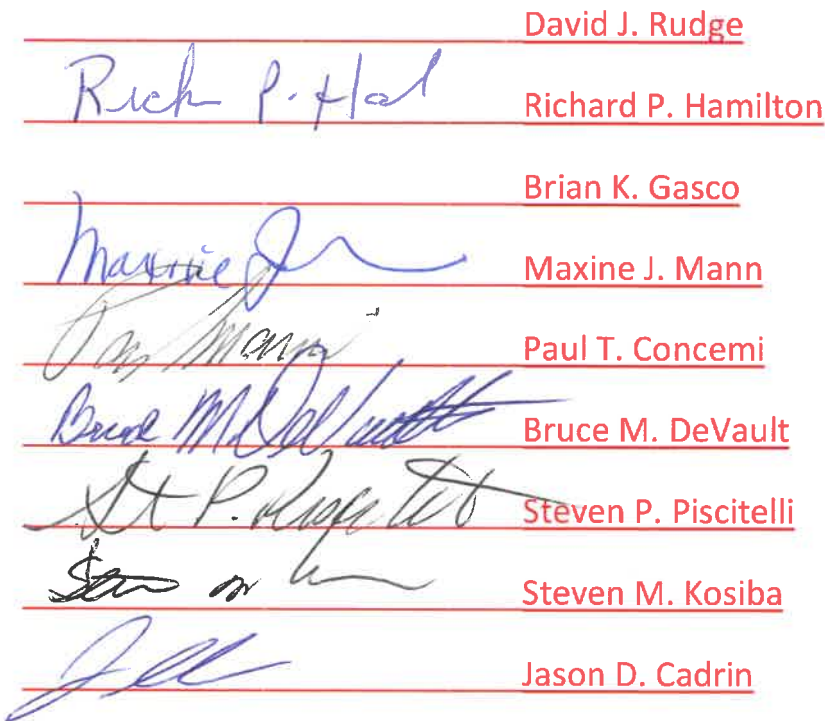 David J. Rudge
Rich P. Hal Richard P. Hamilton
Brian K. Gasco
Maxine J Maxine J. Mann
Paul T. Concemi
Bruce M. DeVault Bruce M. DeVault
P. Steven P. Piscitelli
Steven M. Kosiba
Jason D. Cadrin